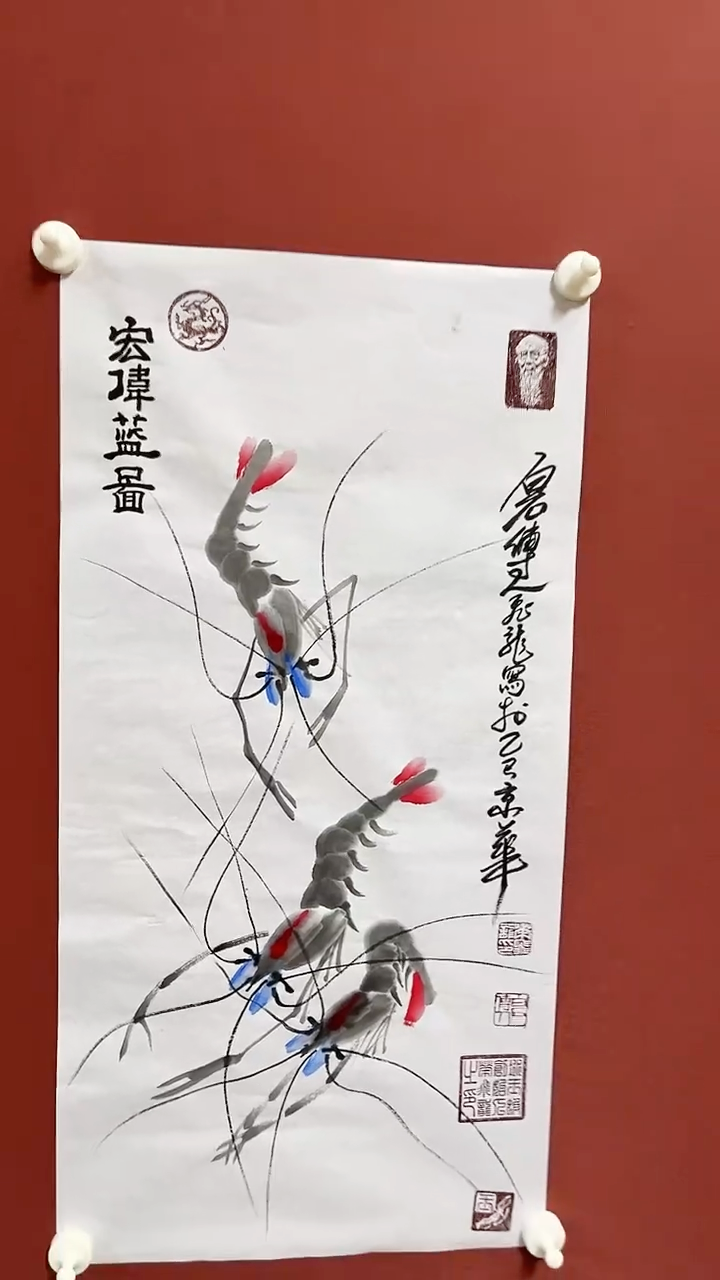 宏偉蓝啚
白石傳人飛龍寫於乙巳京華